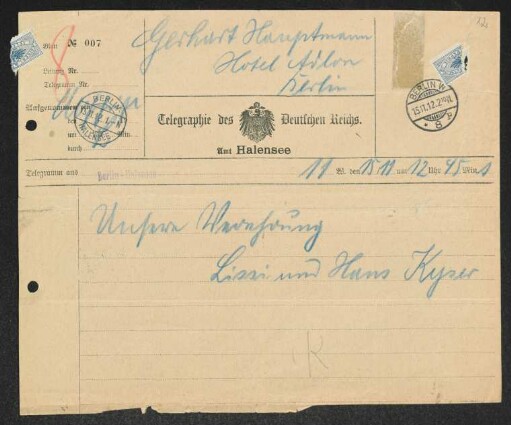 Blatt № 007
Leitung Nr.
Telegramm Nr.
Aufgenommen
von
um
durch
BERLIN W
HALENSEE
Gerhart Hauptmann
Hotel Adlon
Berlin
12
BERLIN W.
15.11.12.
* 8 P
Telegraphie des Deutschen Reichs.
Amt Halensee
Telegramm aus
Berlin-
11 W. den 15 11 um 12 Uhr 45 Min
Unsere Verehrung
Lissi und Hans Kyser
K